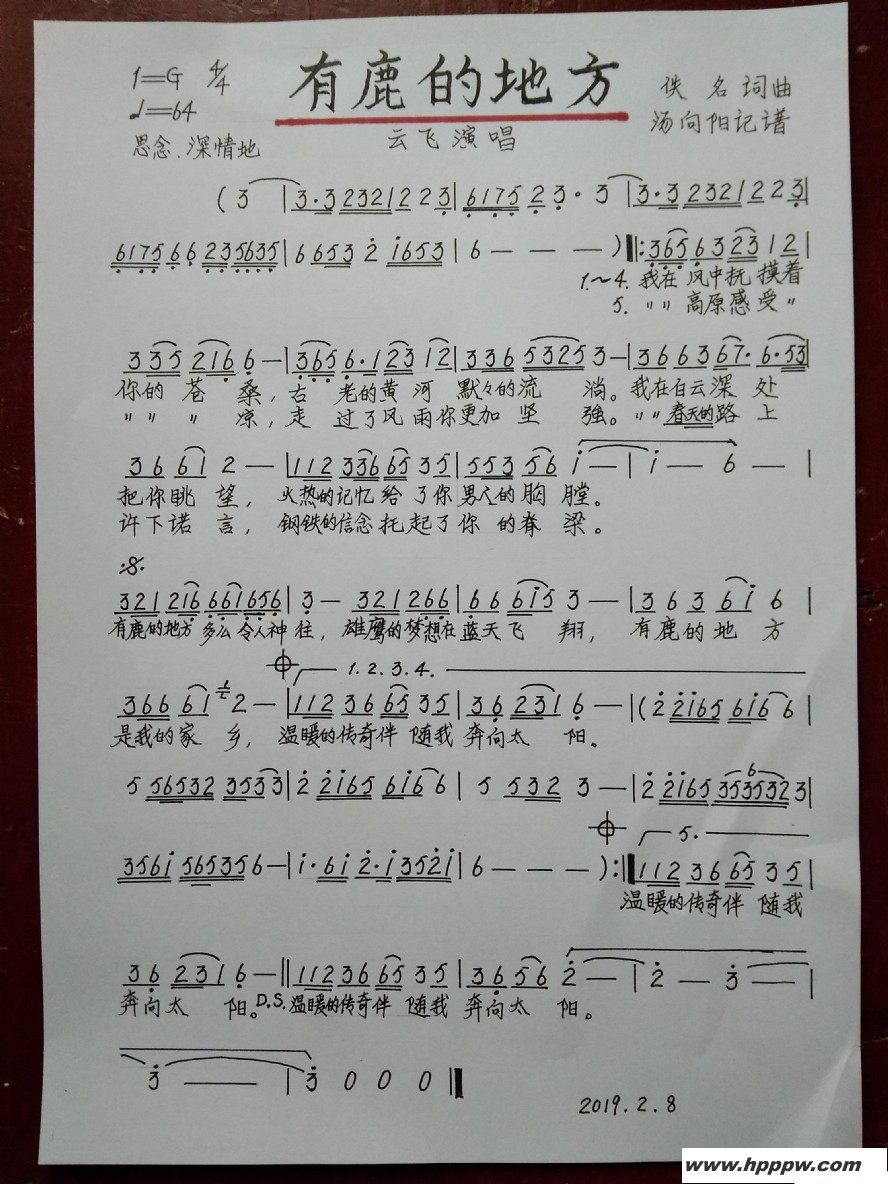 1=G 4/4 有鹿的地方 佚名词曲
♩=64 云飞演唱 汤向阳记谱
思念.深情地
(3 |3·3 2321 2 2 3|6175 2 3· 3|3·3 2321 2 2 3|
6175 6 6 235 5635|6 653 2 1653|6 — — — )‖:365 6 3 23 1 2|
1.～4. 我在风中抚摸着
5. 〃〃高原感受〃
3 35 216 6 —|365 6·1 23 12|336 5325 3 —|36 63 67· 6·53|
你的苍桑,古老的黄河默々的流淌。我在白云深处
〃〃〃凉,走过了风雨你更加坚強。〃〃春天的路上
36 61 2 —|112 336 65 35|553 56 i —|i — 6 —|
把你眺望,火热的记忆给了你男人的胸膛。
许下诺言,钢铁的信念托起了你的脊梁。
321 216 661 656|3 — 321 266|66 615 3 —|36 3 61 6|
有鹿的地方多么令人神往,雄鹰的梦想在蓝天飞翔,有鹿的地方
1.2.3.4.
366 61 2 —|112 36 65 35|36 231 6 —|(2 2165 616 6|
是我的家乡,温暖的传奇伴随我奔向太阳。
5 56532 3533|2 2165 616 6|5 532 3 —|2 2165 353532 3|
6
5.
3561 565356 —|1·61 2·1 3521|6 — — — ):‖112 36 65 35|
温暖的传奇伴随我
36 231 6 —‖112 36 65 35|36 56 2 —|2 — 3 —|
奔向太阳。D.S.温暖的传奇伴随我奔向太阳。
3 —— |3 0 0 0‖
2019.2.8
www.hpppw.com